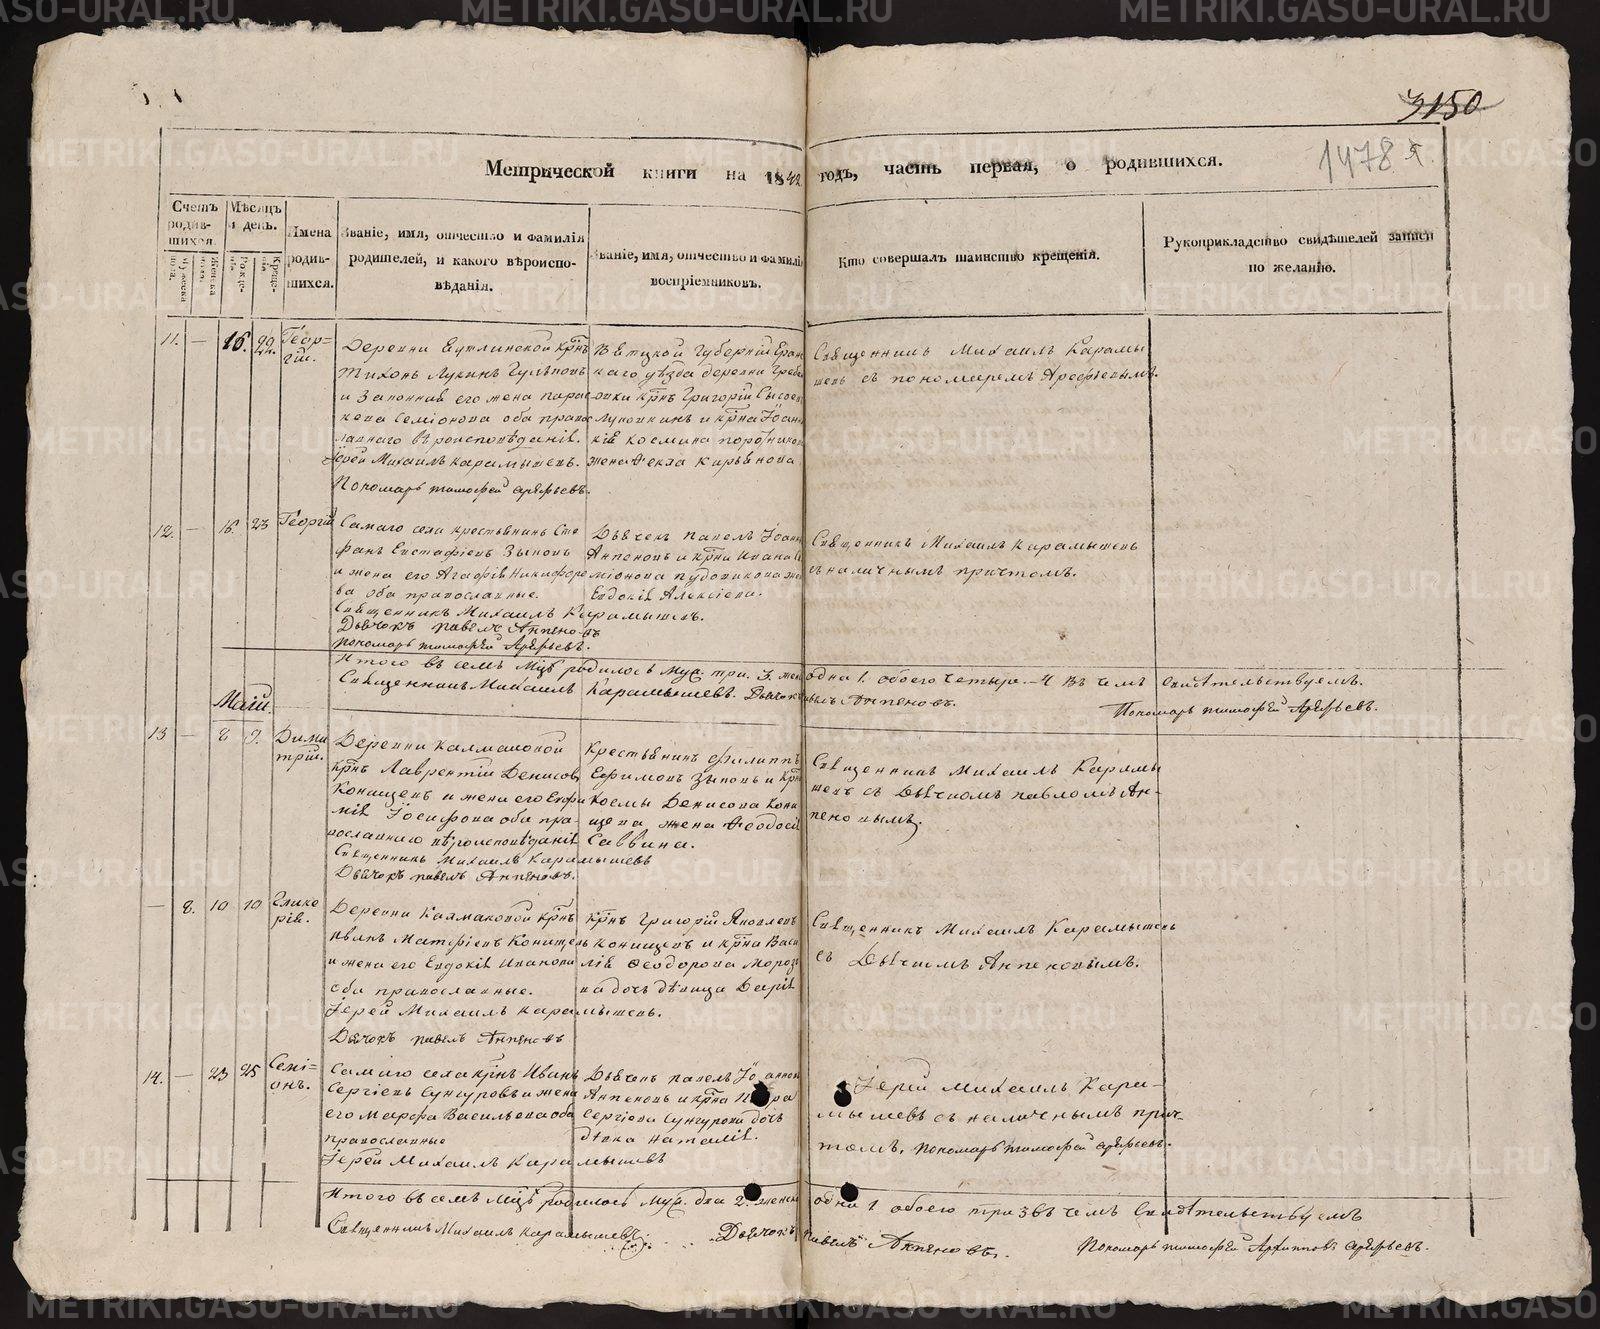 3150
1478 я.
Метрической книги на 1842 годъ, часть первая, о родившихся.
Счетъ родив-шихся.
Мѣсяцъ и день.
Имена родив-шихся.
Званіе, имя, отчество и фамилія
родителей, и какого вѣроиспо-
вѣданія.
Званіе, имя, отчество и фамилія
воспріемниковъ.
Кто совершалъ таинство крещенія.
Рукоприкладство свидѣтелей записи
по желанію.
11. — 16. 22. Геор=
гій.
Деревни крнъ
Тихонъ Лукинъ
и законная его жена Парас
кева Семіонова оба право
славнаго вѣроисповѣданія.
Іерей Михаилъ Карамышевъ.
Пономарь Тимофей Арефьевъ.
Вятской Губерніи
каго уѣзда деревни
крнъ Григорій Сысоевъ
и крнка
Козмина
жена Фекла
Священникъ Михаилъ Карамы
шевъ съ пономаремъ Арефьевымъ.
12. — 16. 23 Георгій
Самаго села крестьянинъ Сте
фанъ Евстафіевъ Зыковъ
и жена его Агафія Никифоро
ва оба православные.
Священникъ Михаилъ Карамышевъ.
Дьячокъ Павелъ Антеновъ
Пономарь Тимофей Арефьевъ.
Дьячекъ Павелъ Іоанновъ
Антеновъ и крнна Ивана Се
міонова жена
Евдокія Алексіева.
Священникъ Михаилъ Карамышевъ
съ наличнымъ причтомъ.
Итого въ семъ мцѣ родилось муж. три. 3. жен одна 1. обоего четыре. — 4 въ чемъ свидѣтельствуемъ.
Священникъ Михаилъ Карамышевъ. Дьячокъ Павелъ Антеновъ. Пономарь Тимофей Арефьевъ.
Маій.
13 — 8 9. Дими
трій.
Деревни Калмаковой
крнъ Лаврентій Денисовъ
Конищевъ и жена его Евфи
мія Іосифова оба пра-
вославнаго вѣроисповѣданія
Священникъ Михаилъ Карамышевъ
Дьячокъ Павелъ Антеновъ.
Крестьянинъ Филиппъ
Ефимовъ Зыковъ и крнна
Козмы Денисова Кони
щева жена Феодосія
Саввина.
Священникъ Михаилъ Карамы
шевъ съ Дьячкомъ Павломъ Ан-
теновымъ.
— 8. 10 10 Глике
рія.
Деревни Калмаковой крнъ
Иванъ Матфіевъ Конищевъ
и жена его Евдокія Иванова
оба православные.
Іерей Михаилъ Карамышевъ.
Дьячокъ Павелъ Антеновъ
крнъ Григорій Яковлевъ
Конищевъ и крнна Васи
лія Феодорова Мороз
ва дочь дѣвица Дарія
Священникъ Михаилъ Карамышевъ
съ Дьячкомъ Антеновымъ.
14. — 23 25 Семі=
онъ.
Самаго села крнъ Иванъ
Сергіевъ Сунгуровъ и жена
его Марфа Васильева оба
православные
Іерей Михаилъ Карамышевъ
Дьячекъ Павелъ Іоанновъ
Антеновъ и крнна Петра
Сергіева Сунгурова дочь
дѣвка Наталія.
Іерей Михаилъ Кара-
мышевъ съ наличнымъ прич-
томъ. Пономарь Тимофей Арефьевъ.
Итого въ семъ мцѣ родилось муж. два 2. женск одна 1 обоего три 3 въ чемъ свидѣтельствуемъ
Священникъ Михаилъ Карамышевъ. Дьячокъ Павелъ Антеновъ. Пономарь Тимофей Архиповъ Арефьевъ.
METRIKI.GASO-URAL.RU